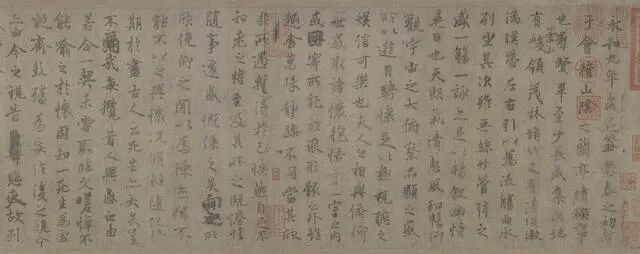 永和九年歲在癸丑暮春之初會
于會稽山陰之蘭亭脩稧事
也群賢畢至少長咸集此地
有崇山峻領茂林脩竹又有清流激
湍暎帶左右引以為流觴曲水
列坐其次雖無絲竹管弦之
盛一觴一詠亦足以暢敘幽情
是日也天朗氣清惠風和暢仰
觀宇宙之大俯察品類之盛
所以遊目騁懷足以極視聽之
娛信可樂也夫人之相與俯仰
一世或取諸懷抱悟言一室之內
或因寄所託放浪形骸之外雖
趣舍萬殊靜躁不同當其欣
於所遇蹔得於己怏然自足不
知老之將至及其所之既惓情
隨事遷感慨係之矣向之所
欣俛仰之閒以為陳跡猶不
能不以之興懷況脩短隨化終
期於盡古人云死生亦大矣豈
不痛哉每攬昔人興感之由
若合一契未嘗不臨文嗟悼不
能喻之於懷固知一死生為虛
誕齊彭殤為妄作後之視今
亦由今之視昔悲夫故列